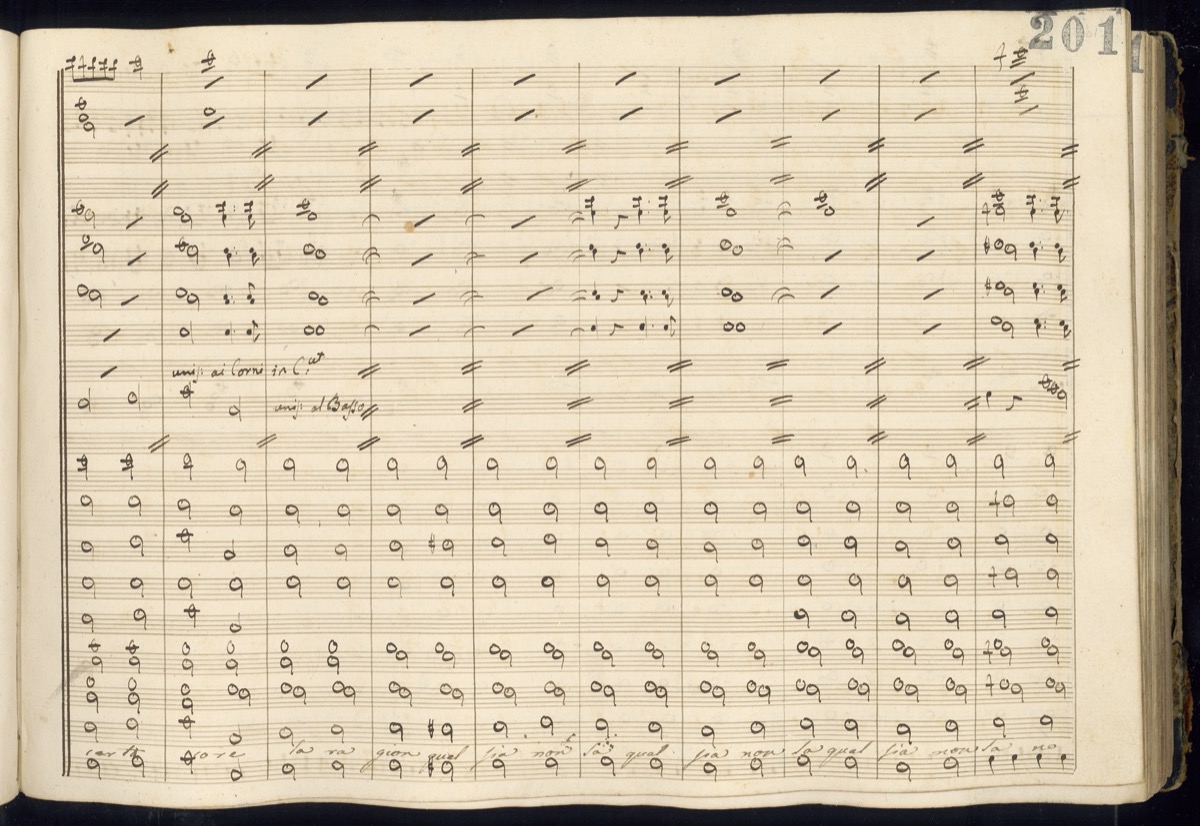 201
1
unis: ai Corni in C:ut
unis: al Basso
certo rore la ra gion qual sia non sa qual sia non sa qual sia non sa no